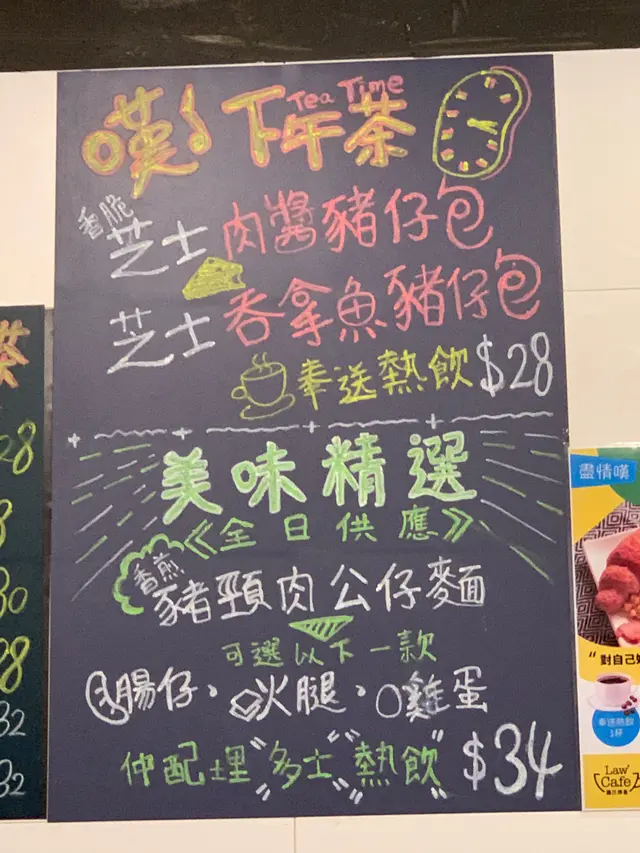 嘆下午茶
Tea Time
香脆
芝士肉醬豬仔包
芝士吞拿魚豬仔包
奉送熱飲 $28
美味精選
《全日供應》
香煎
豬頸肉公仔麵
可選以下一款
腸仔・火腿・雞蛋
仲配埋"多士""熱飲" $34
茶
28
8
30
38
32
32
盡情嘆
"對自己
奉送熱飲
1杯
Law'
Cafe